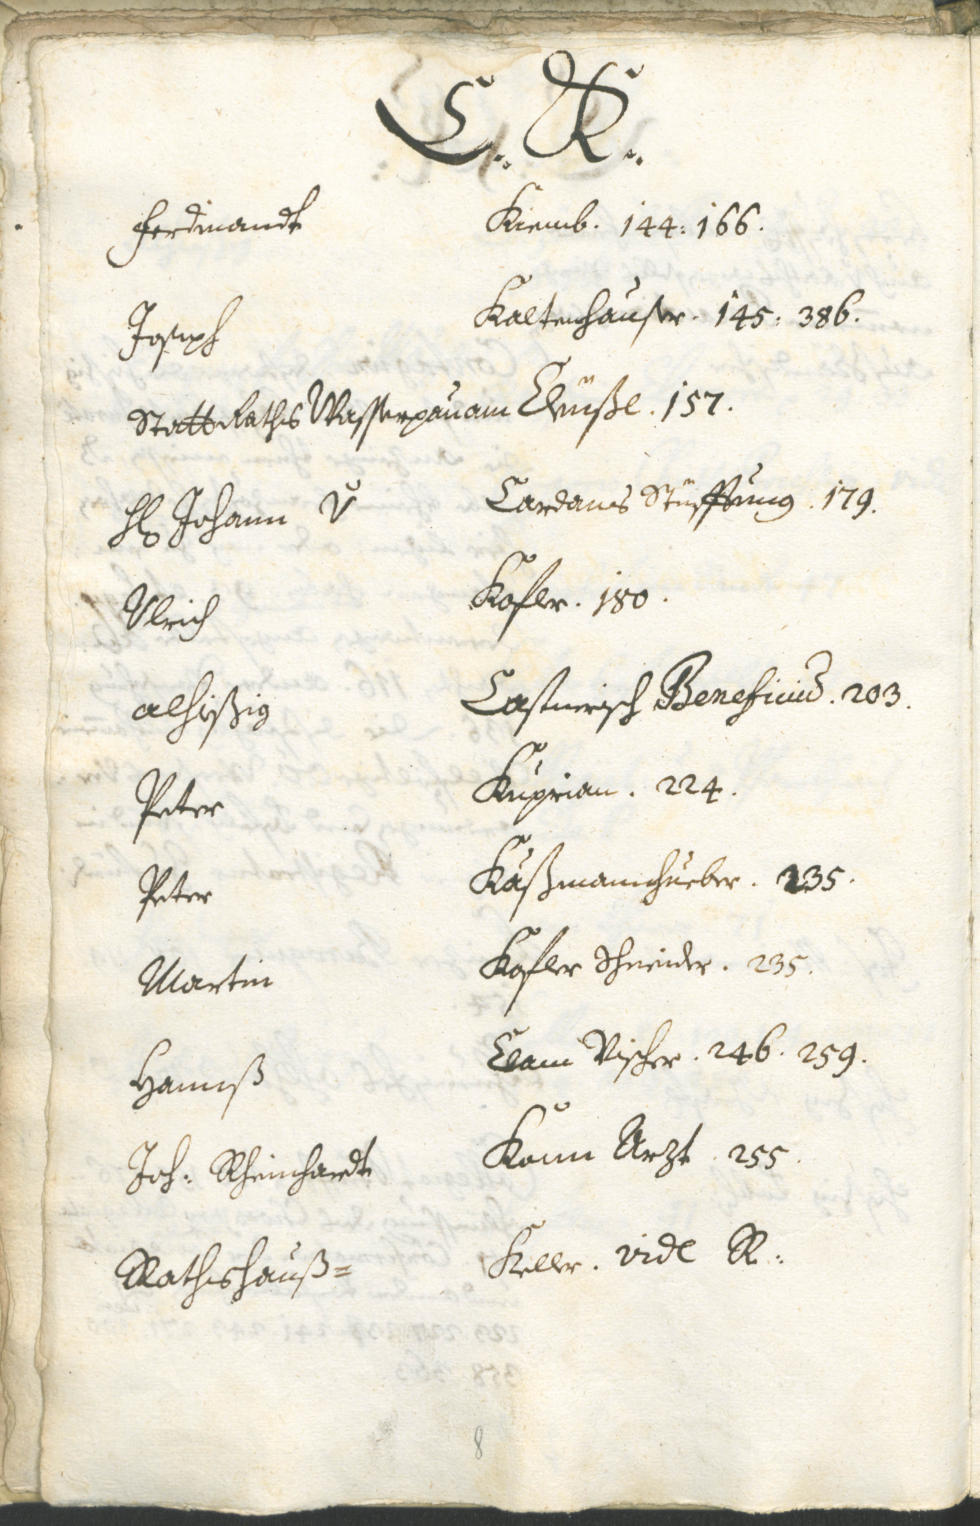 C. K.
Ferdinandt Kiemb. 144: 166.
Joseph Kaltenhauser. 145: 386.
Statt Raths Wasserpau am 157.
H Johann V Cardanis Stüfftung. 179.
Ulrich Kofler. 180.
alhißig Castnerisch Beneficium. 203.
Peter Kuprian. 224.
Peter Käßmannhueber. 235.
Martin Kofler Schneider. 235.
Hannß Clam Vischer. 246. 259.
Joh: Rheinhardt Konn Arzt. 255.
Rathshauß= Keller. vide R:
8